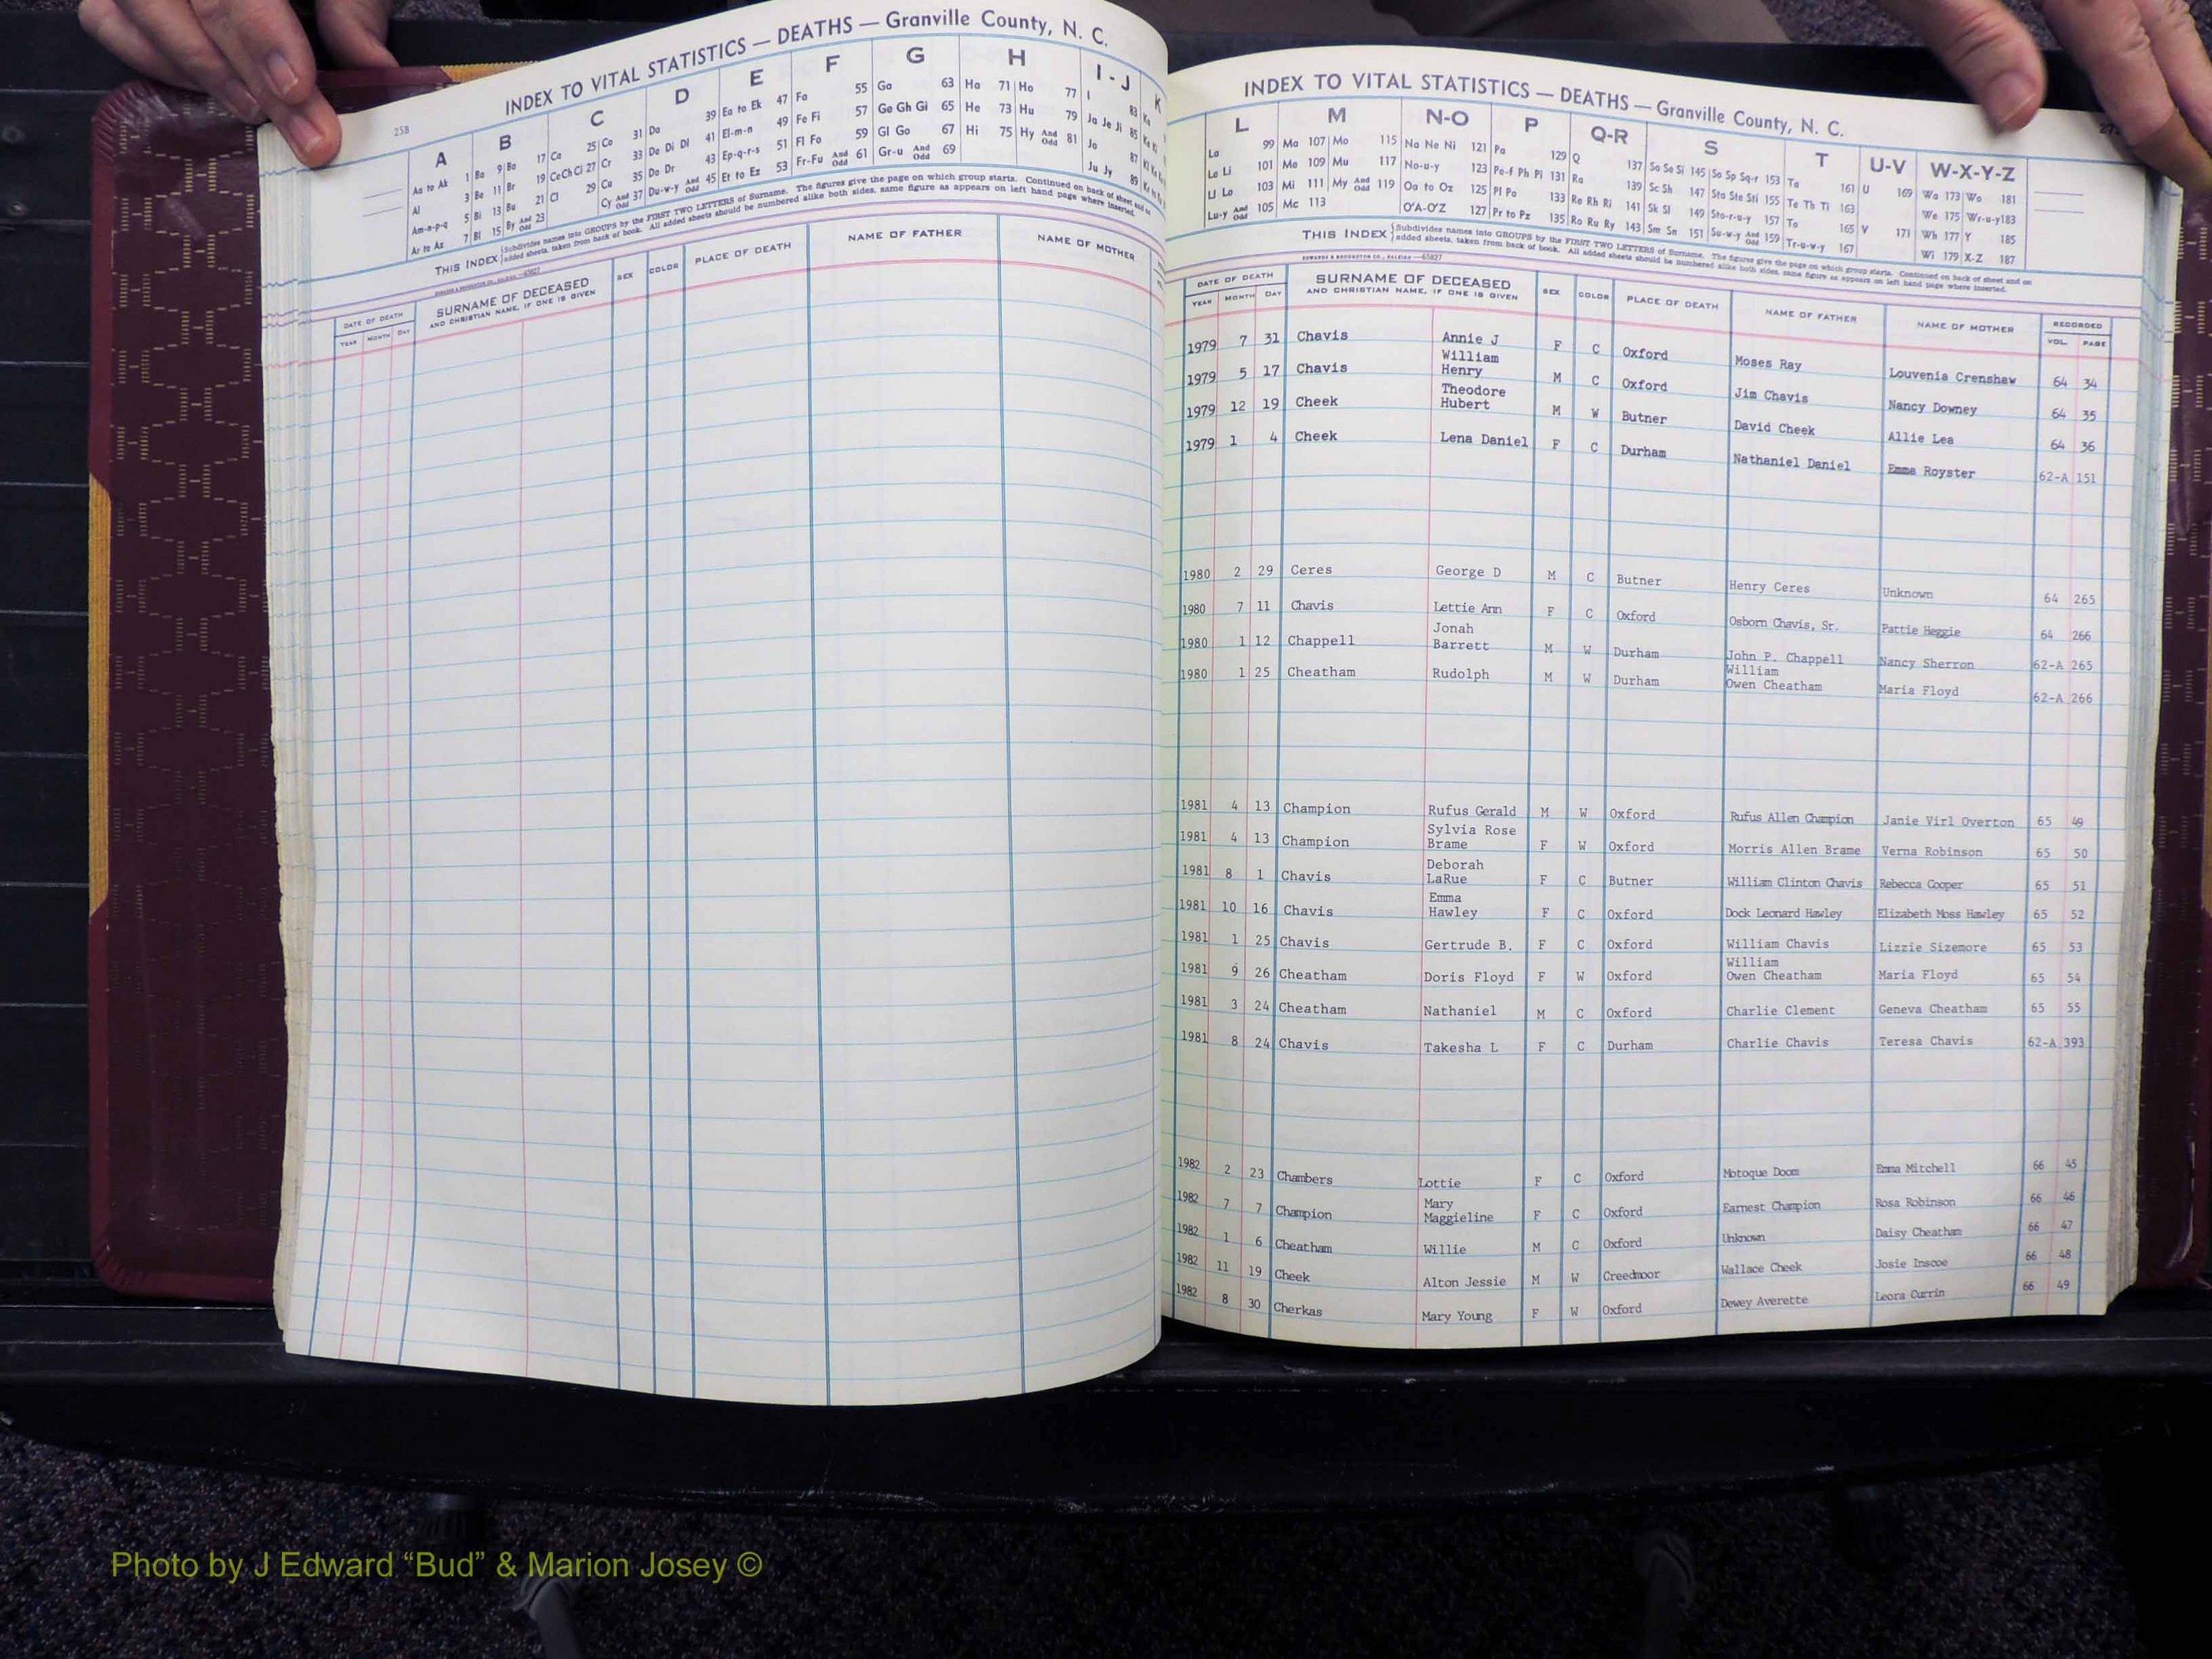 INDEX TO VITAL STATISTICS — DEATHS — Granville County, N. C.
25B
A B C D E F G H I-J K
Aa to Ak 1 Ba 9 Bo 17 Ca 25 Co 31 Da 39 Ea to Ek 47 Fa 55 Ga 63 Ha 71 Ho 77 I 83 Ka
Al 3 Be 11 Br 19 Ce Ch Ci 27 Cr 33 De Di Dl 41 El-m-n 49 Fe Fi 57 Ge Gh Gi 65 He 73 Hu 79 Ja Je Ji 85
Am-n-p-q 5 Bi 13 Bu 21 Cl 29 Cu 35 Do Dr 43 Ep-q-r-s 51 Fl Fo 59 Gl Go 67 Hi 75 Hy And Odd 81 Jo 87
Ar to Az 7 Bl 15 By And Odd 23 Cy And Odd 37 Du-w-y And Odd 45 Et to Ez 53 Fr-Fu And Odd 61 Gr-u And Odd 69 Ju Jy 89
THIS INDEX Subdivides names into GROUPS by the FIRST TWO LETTERS of Surname. The figures give the page on which group starts. Continued on back of sheet and on
added sheets, taken from back of book. All added sheets should be numbered alike both sides, same figure as appears on left hand page where inserted.
DATE OF DEATH SURNAME OF DECEASED SEX COLOR PLACE OF DEATH NAME OF FATHER NAME OF MOTHER
YEAR MONTH DAY AND CHRISTIAN NAME, IF ONE IS GIVEN
INDEX TO VITAL STATISTICS — DEATHS — Granville County, N. C.
L M N-O P Q-R S T U-V W-X-Y-Z
La 99 Ma 107 Mo 115 Na Ne Ni 121 Pa 129 Q 137 Sa Se Si 145 So Sp Sq-r 153 Ta 161 U 169 Wa 173 Wo 181
Le Li 101 Me 109 Mu 117 No-u-y 123 Pe-f Ph Pi 131 Ra 139 Sc Sh 147 Sta Ste Sti 155 Te Th Ti 163 We 175 Wr-u-y 183
Ll Lo 103 Mi 111 My And Odd 119 Oa to Oz 125 Pl Po 133 Re Rh Ri 141 Sk Sl 149 Sto-r-u-y 157 To 165 V 171 Wh 177 Y 185
Lu-y And Odd 105 Mc 113 O'A-O'Z 127 Pr to Pz 135 Ro Ru Ry 143 Sm Sn 151 Su-w-y And Odd 159 Tr-u-w-y 167 Wi 179 X-Z 187
THIS INDEX Subdivides names into GROUPS by the FIRST TWO LETTERS of Surname. The figures give the page on which group starts. Continued on back of sheet and on
added sheets, taken from back of book. All added sheets should be numbered alike both sides, same figure as appears on left hand page where inserted.
EDWARDS & BROUGHTON CO., RALEIGH —65827
DATE OF DEATH SURNAME OF DECEASED SEX COLOR PLACE OF DEATH NAME OF FATHER NAME OF MOTHER RECORDED
YEAR MONTH DAY AND CHRISTIAN NAME, IF ONE IS GIVEN VOL. PAGE
1979 7 31 Chavis Annie J F C Oxford Moses Ray Louvenia Crenshaw 64 34
William
1979 5 17 Chavis Henry M C Oxford Jim Chavis Nancy Downey 64 35
Theodore
1979 12 19 Cheek Hubert M W Butner David Cheek Allie Lea 64 36
1979 1 4 Cheek Lena Daniel F C Durham Nathaniel Daniel Emma Royster 62-A 151
1980 2 29 Ceres George D M C Butner Henry Ceres Unknown 64 265
1980 7 11 Chavis Lettie Ann F C Oxford Osborn Chavis, Sr. Pattie Heggie 64 266
Jonah
1980 1 12 Chappell Barrett M W Durham John P. Chappell Nancy Sherron 62-A 265
William
1980 1 25 Cheatham Rudolph M W Durham Owen Cheatham Maria Floyd 62-A 266
1981 4 13 Champion Rufus Gerald M W Oxford Rufus Allen Champion Janie Virl Overton 65 49
Sylvia Rose
1981 4 13 Champion Brame F W Oxford Morris Allen Brame Verna Robinson 65 50
Deborah
1981 8 1 Chavis LaRue F C Butner William Clinton Chavis Rebecca Cooper 65 51
Emma
1981 10 16 Chavis Hawley F C Oxford Dock Leonard Hawley Elizabeth Moss Hawley 65 52
1981 1 25 Chavis Gertrude B. F C Oxford William Chavis Lizzie Sizemore 65 53
William
1981 9 26 Cheatham Doris Floyd F W Oxford Owen Cheatham Maria Floyd 65 54
1981 3 24 Cheatham Nathaniel M C Oxford Charlie Clement Geneva Cheatham 65 55
1981 8 24 Chavis Takesha L F C Durham Charlie Chavis Teresa Chavis 62-A 393
1982 2 23 Chambers Lottie F C Oxford Motoque Doom Emma Mitchell 66 45
Mary
1982 7 7 Champion Maggieline F C Oxford Earnest Champion Rosa Robinson 66 46
1982 1 6 Cheatham Willie M C Oxford Unknown Daisy Cheatham 66 47
1982 11 19 Cheek Alton Jessie M W Creedmoor Wallace Cheek Josie Inscoe 66 48
1982 8 30 Cherkas Mary Young F W Oxford Dewey Averette Leora Currin 66 49
Photo by J Edward “Bud” & Marion Josey ©